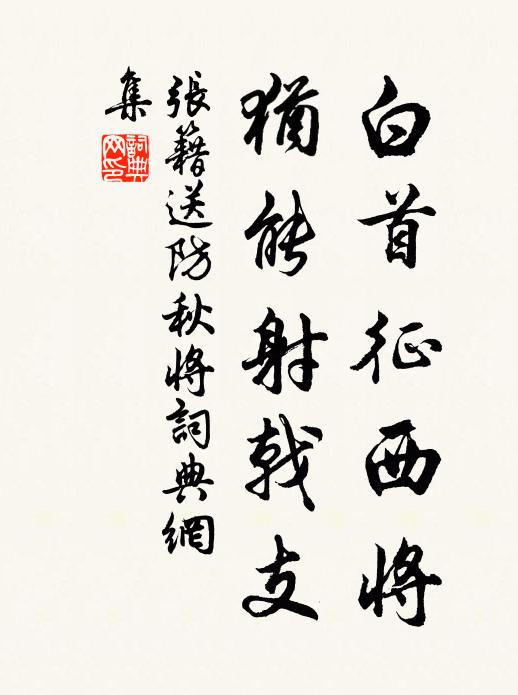 白首征西將
猶能射戟支
張籍送防秋將詞典網
集
詞典
网印